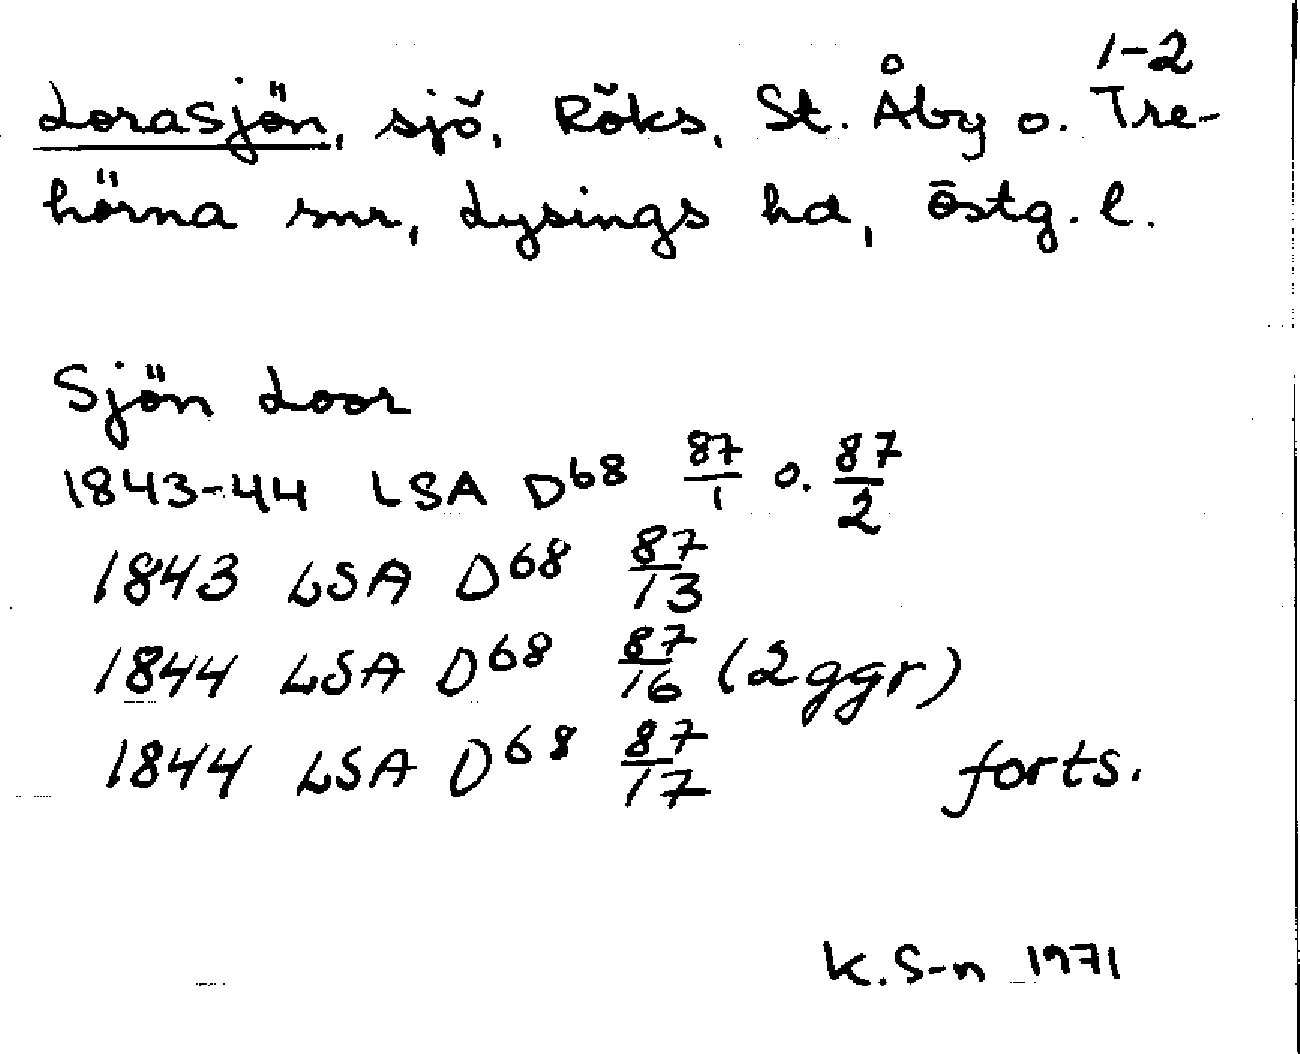 1-2
Lorasjön, sjö, Röks, St. Åby o. Tre-
hörna snr, Lysings hd, Östg. l.
Sjön Loor
1843-44 LSA D68 87/1 o. 87/2
1843 LSA D68 87/13
1844 LSA D68 87/16 (2 ggr)
1844 LSA D68 87/17 forts.
K. S-n 1971